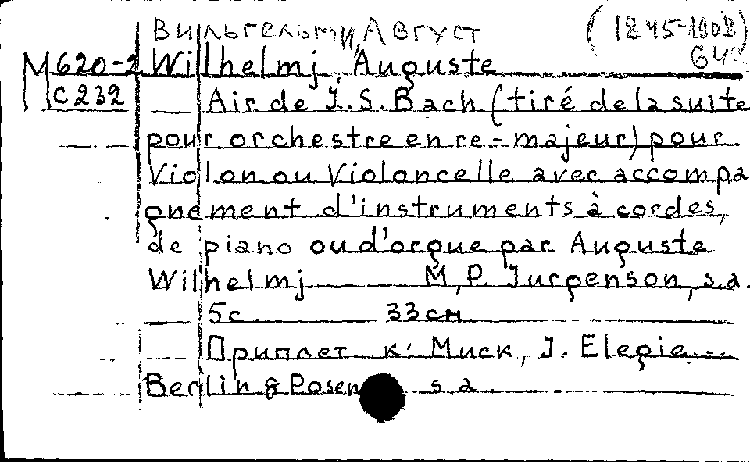 Вильгельми, Август (1845-1908)
М620-2 Wilhelmj, Auguste
С232 Air de J.S. Bach (tiré de la suite
pour orchestre en re-majeur) pour
Violon ou Violoncelle avec accompa
gnement d'instruments à cordes,
de piano ou d'orgue par Auguste
Wilhelmj M, P. Jurgenson, s.a.
5с 33см
Приплет к: Миск, J. Elegie...
Berlin & Posen s.a.